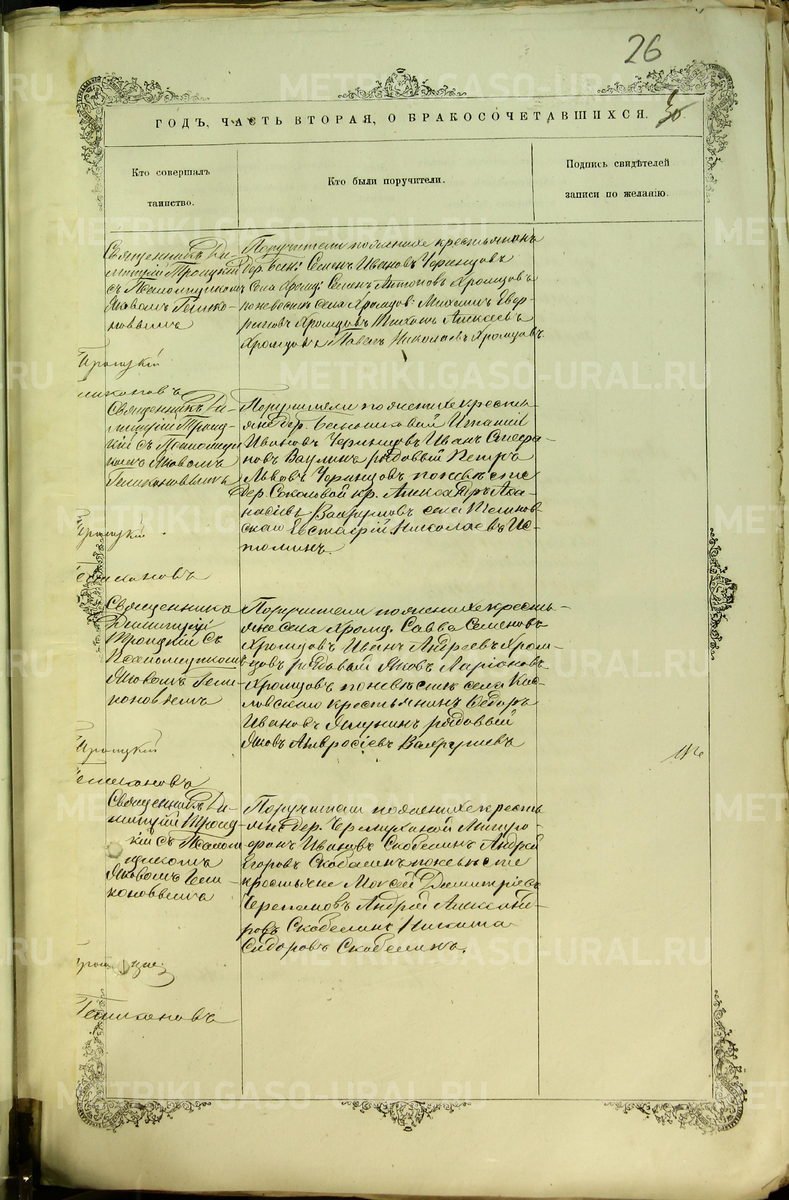 26
ГОДЪ, ЧАСТЬ ВТОРАЯ, О БРАКОСОЧЕТАВШИХСЯ.
Кто совершалъ
таинство.
Кто были поручители.
Подпись свидѣтелей
записи по желанію.
Священникъ Ди-
митрій Троицкій
съ Псаломщикомъ
Яковомъ Гели-
коновымъ
Поручители по женихе крестьянинъ
Дер. Семенъ Ивановъ Черныцовъ
села Хромц: Семенъ Антоновъ Хромцовъ
по невесте села Хромцов
Хромцовъ Тихонъ Алексеевъ
Хромцовъ и Павелъ Николаевъ Хромцовъ.
Троицкій
ликоновъ
Священникъ Ди-
митрій Троиц-
кій съ Псаломщи-
комъ Яковомъ
Геликоновымъ
Поручители по женихе кресть-
яне дер.
Ивановъ Черныцовъ Иванъ
Ваулинъ рядовый Петръ
Львовъ Черныцовъ по невесте
дер. Соколовой кр. Александръ Афа-
насьевъ Вахрушевъ села
Евстафій Николаевъ Ис-
томинъ.
Троицкій
Геликоновъ
Священникъ
Димитрій
Троицкій съ
Псаломщикомъ
Яковомъ Гели-
коновымъ
Поручители по женихе кресть-
яне села Хромц. Савва Семеновъ
Хромцовъ Иванъ Андреевъ Хром-
цовъ рядовый Яковъ Ларіоновъ
Хромцовъ по невесте села Кис-
ловскаго крестьянинъ Федоръ
Ивановъ рядовый
Яковъ Амвросіевъ Вахрушевъ
Троицкій
Геликоновъ
Священникъ Ди-
митрій Троиц-
кій съ Псалом-
щикомъ
Яковомъ Гели-
коновымъ
Поручители по женихе кресть-
яне дер. Митро-
фанъ Ивановъ Скобелинъ Андрей
Егоровъ Скобелинъ по невесте
крестьяне Моисей Димитріевъ
Черепановъ Андрей Александ-
ровъ Скобелинъ Никита
Сидоровъ Скобелинъ.
Троицкій
Геликоновъ
METRIKI.GASO-URAL.RU